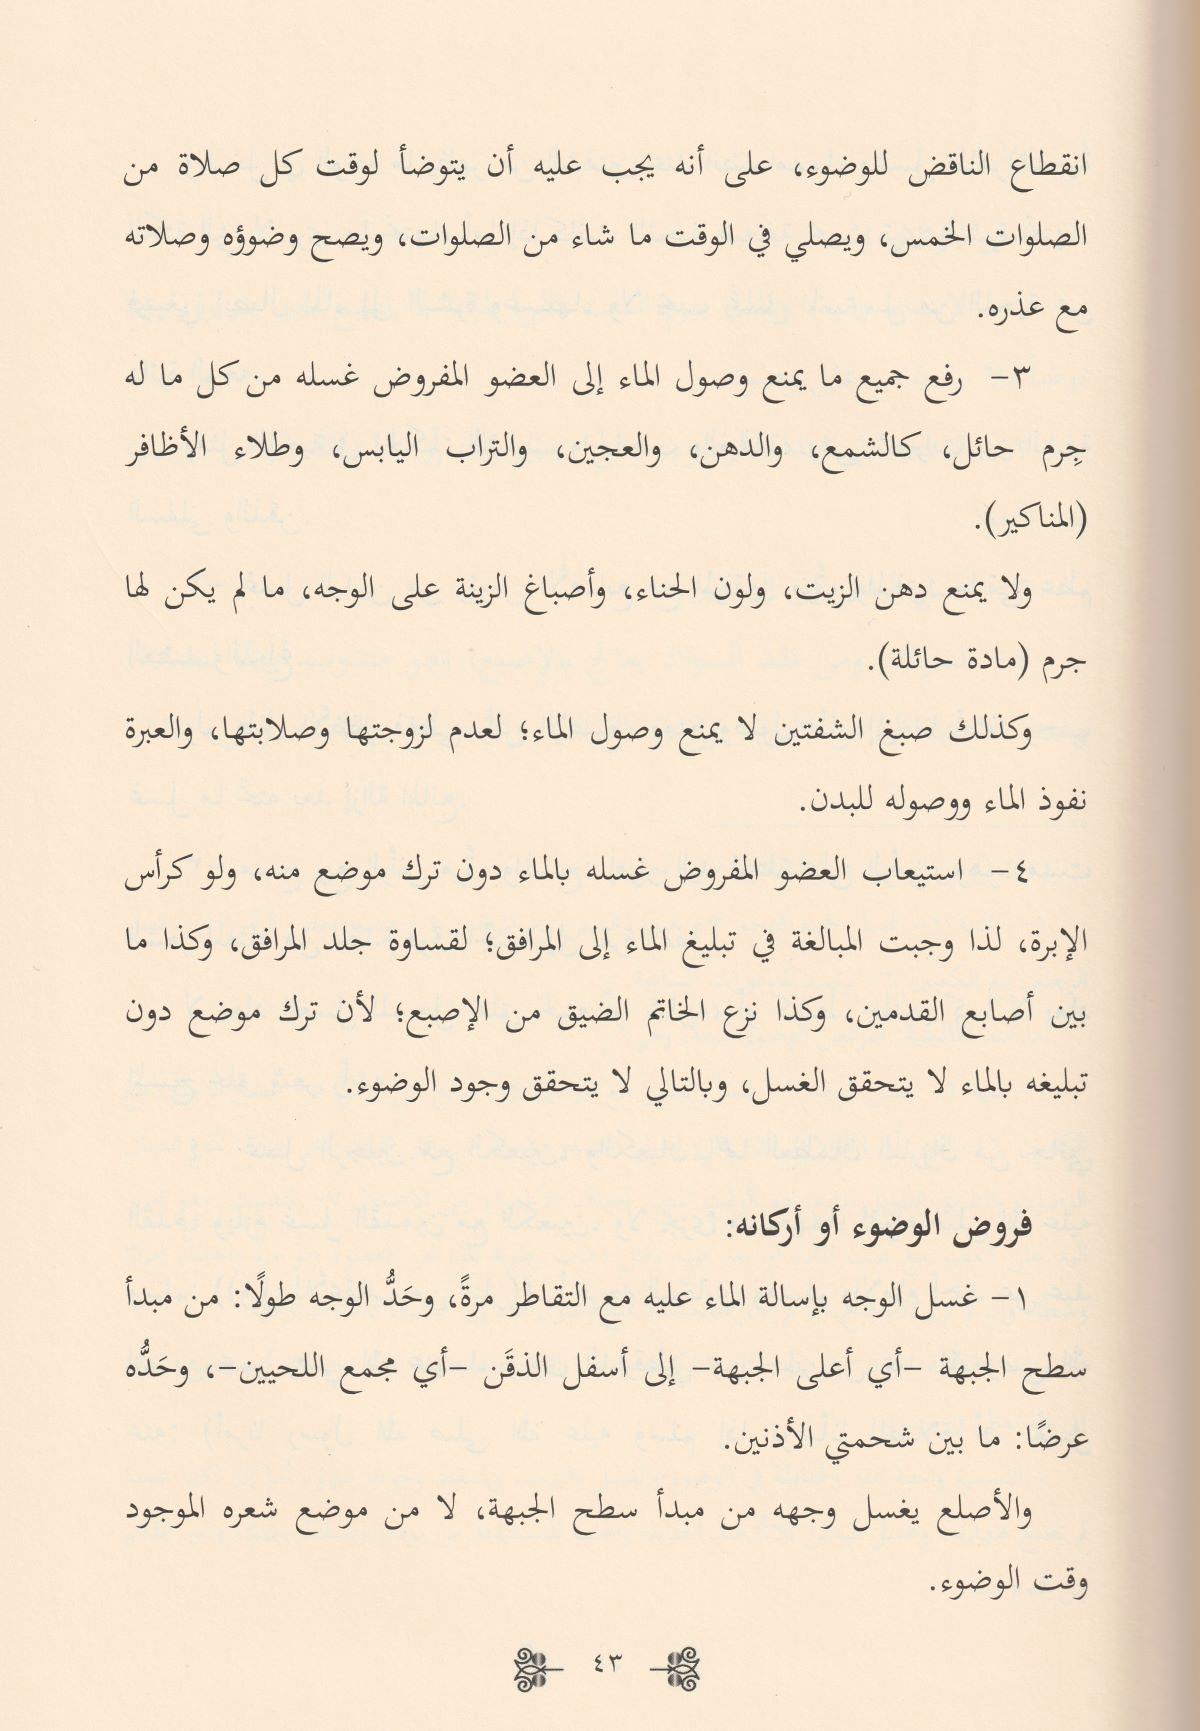 انقطاع الناقض للوضوء، على أنه يجب عليه أن يتوضأ لوقت كل صلاة من
الصلوات الخمس، ويصلي في الوقت ما شاء من الصلوات، ويصح وضوؤه وصلاته
مع عذره.
٣- رفع جميع ما يمنع وصول الماء إلى العضو المفروض غسله من كل ما له
جِرم حائل، كالشمع، والدهن، والعجين، والتراب اليابس، وطلاء الأظافر
(المناكير).
ولا يمنع دهن الزيت، ولون الحناء، وأصباغ الزينة على الوجه، ما لم يكن لها
جرم (مادة حائلة).
وكذلك صبغ الشفتين لا يمنع وصول الماء؛ لعدم لزوجتها وصلابتها، والعبرة
نفوذ الماء ووصوله للبدن.
٤- استيعاب العضو المفروض غسله بالماء دون ترك موضع منه، ولو كرأس
الإبرة، لذا وجبت المبالغة في تبليغ الماء إلى المرافق؛ لقساوة جلد المرافق، وكذا ما
بين أصابع القدمين، وكذا نزع الخاتم الضيق من الإصبع؛ لأن ترك موضع دون
تبليغه بالماء لا يتحقق الغسل، وبالتالي لا يتحقق وجود الوضوء.
فروض الوضوء أو أركانه:
١- غسل الوجه بإسالة الماء عليه مع التقاطر مرةً، وحَدُّ الوجه طولًا: من مبدأ
سطح الجبهة -أي أعلى الجبهة- إلى أسفل الذقَن -أي مجمع اللحيين-، وحَدُّه
عرضًا: ما بين شحمتي الأذنين.
والأصلع يغسل وجهه من مبدأ سطح الجبهة، لا من موضع شعره الموجود
وقت الوضوء.
٤٣